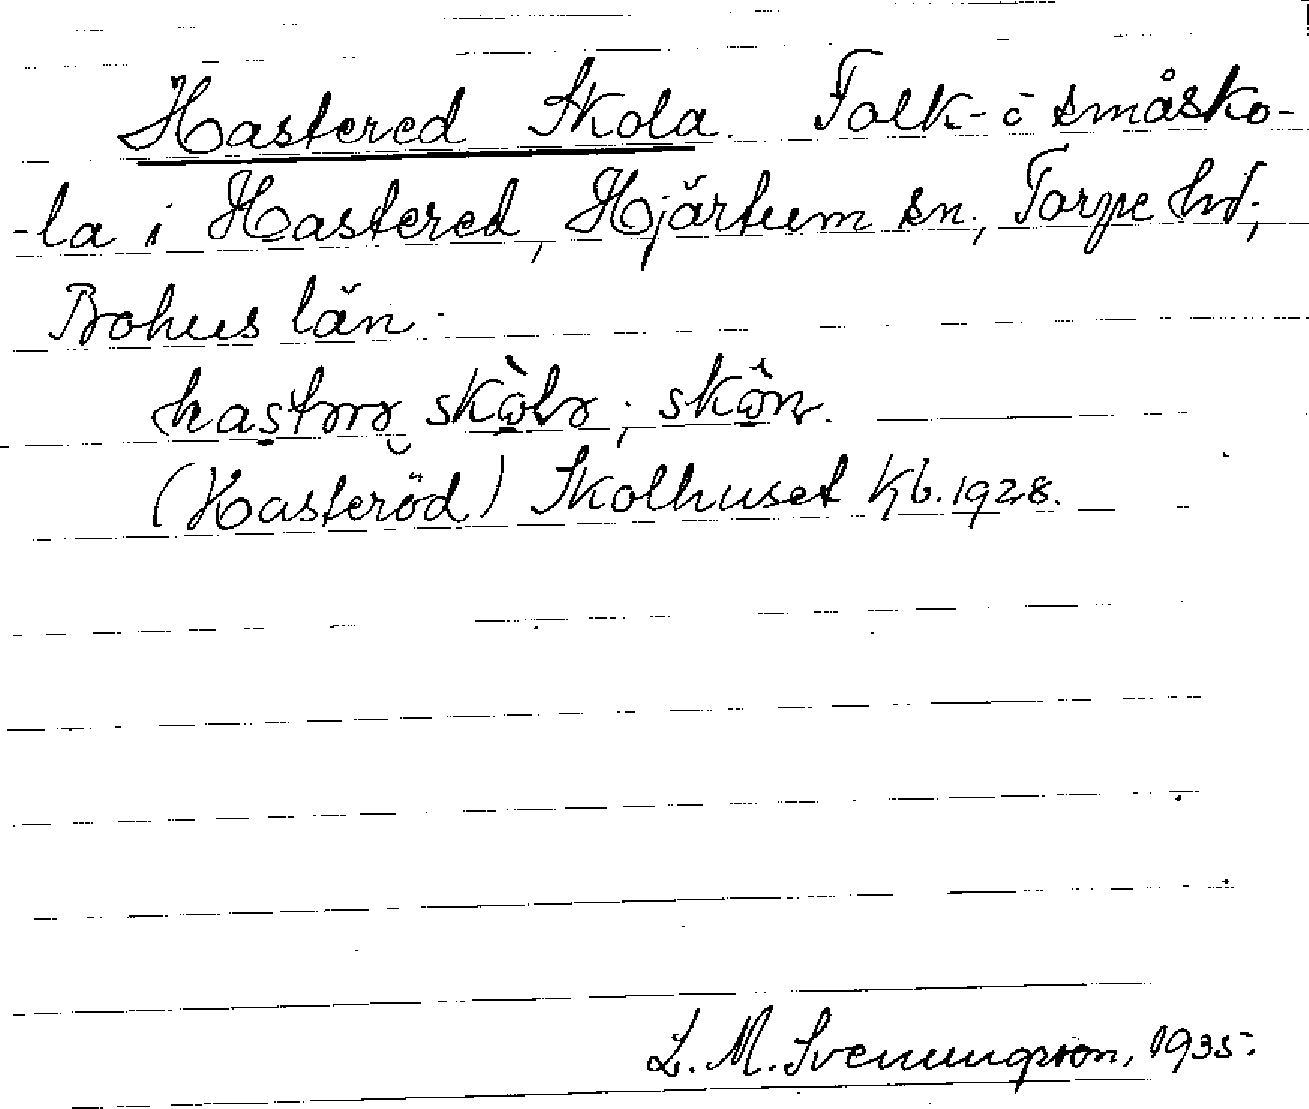 Hastered Skola. Folk- o småsko-
-la i Hastered, Hjärtum sn, Torpe hd,
Bohus län.
skòla; skôn.
(Hasteröd) Skolhuset Kb. 1928.
L. M. Svenungsson, 1935.